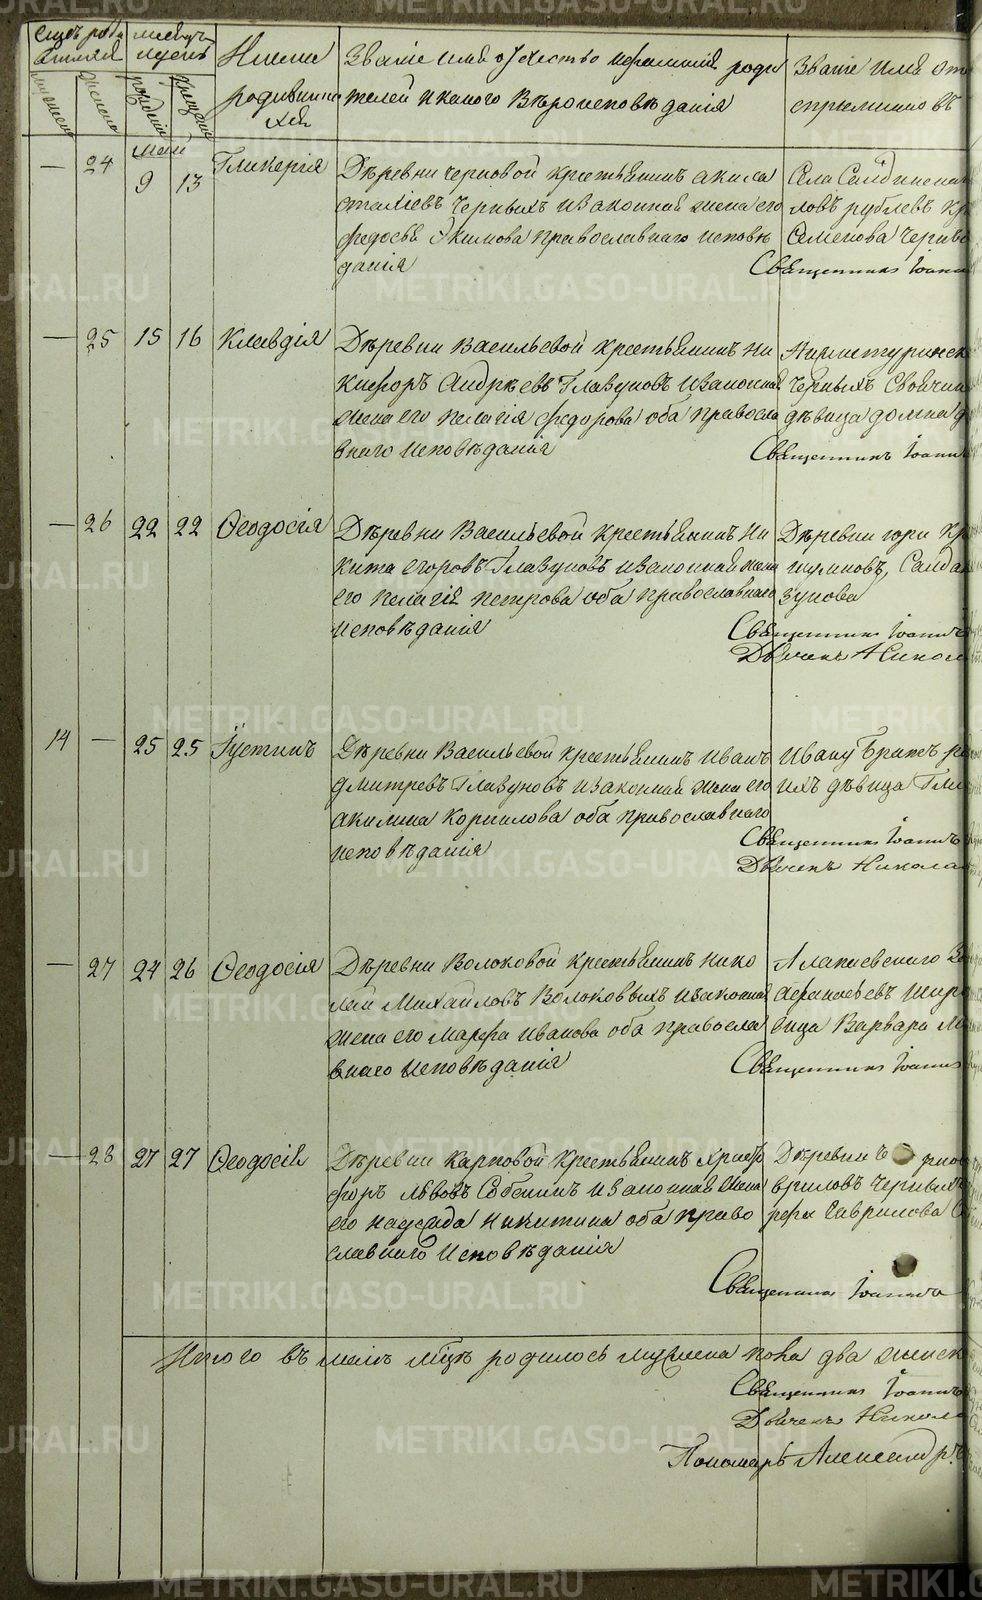 Счетъ роди
вшихся
Мѣсяцъ
и день
мужеска
женска
рожденія
крещенія
Имена
родивших
ся
Званіе имя отчество и фамилія роди
телей и какого Вѣроисповѣданія
Званіе имя отч
— 24
Май
9 13
Гликерія
Деревни Черновой крестьянинъ Акила
Черныхъ и законная жена его
Федосья Якимова православнаго исповѣ
данія
Семенова Черно
Священникъ Іоанн
— 25 15 16 Клавдія
Деревни Васильевой крестьянинъ Ни
кифоръ Андреевъ Глазуновъ и законная
жена его Пелагія Федорова оба правосла
внаго исповѣданія
Черныхъ
дѣвица Домна
Священникъ Іоанн
— 26 22 22 Ѳеодосія
Деревни Васильевой крестьянинъ Ни
кита Егоровъ Глазуновъ и законная жена
его Пелагія Петрова оба православнаго
исповѣданія
Деревни
зунова
Священникъ Іоаннъ
Дьячекъ Никол
14 — 25 25 Іустинъ
Деревни Васильевой крестьянинъ Иванъ
Дмитревъ Глазуновъ и законная жена его
Акилина Корнилова оба православнаго
исповѣданія
Ивану братъ
ихъ дѣвица Гли
Священникъ Іоаннъ
Дьячекъ Никола
— 27 24 26 Ѳеодосія
Деревни Волоковой крестьянинъ Нико
лай Михайловъ Волоковыхъ и законная
жена его Марфа Иванова оба правосла
внаго исповѣданія
Алапаевскаго
Афанасьевъ Шир
вица Варвара
Священникъ Іоанн
— 28 27 27 Ѳеодосія
Деревни Карповой крестьянинъ Христо
форъ Львовъ Собенинъ и законная жена
его Надежда Никитина оба право
славнаго исповѣданія
Деревни
вриловъ Черныхъ
рфа Гаврилова
Священникъ Іоаннъ
Итого въ маѣ мцѣ родилось мужеска пола два женск
Священникъ Іоаннъ
Дьячекъ Никола
Пономарь Александръ
METRIKI.GASO-URAL.RU